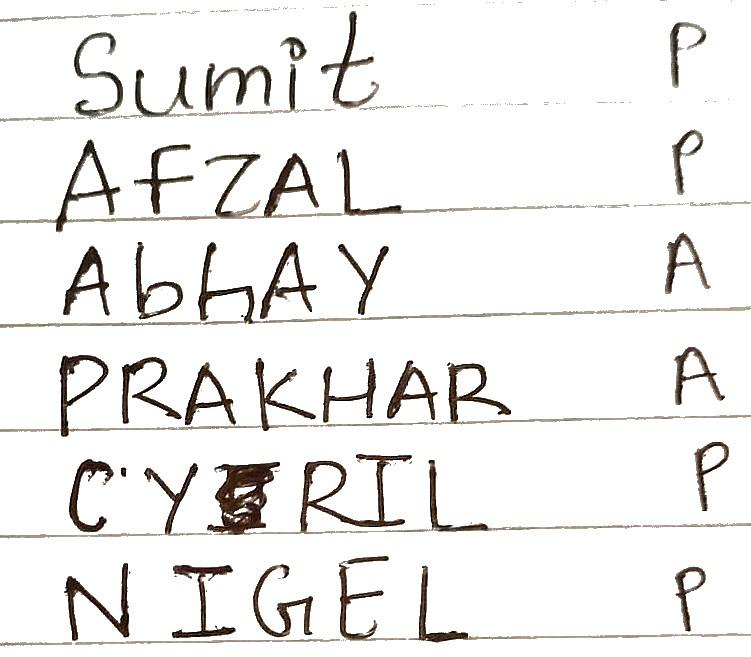 Sumit P
AFZAL P
AbhAY A
PRAKHAR A
CYRIL P
NIGEL P